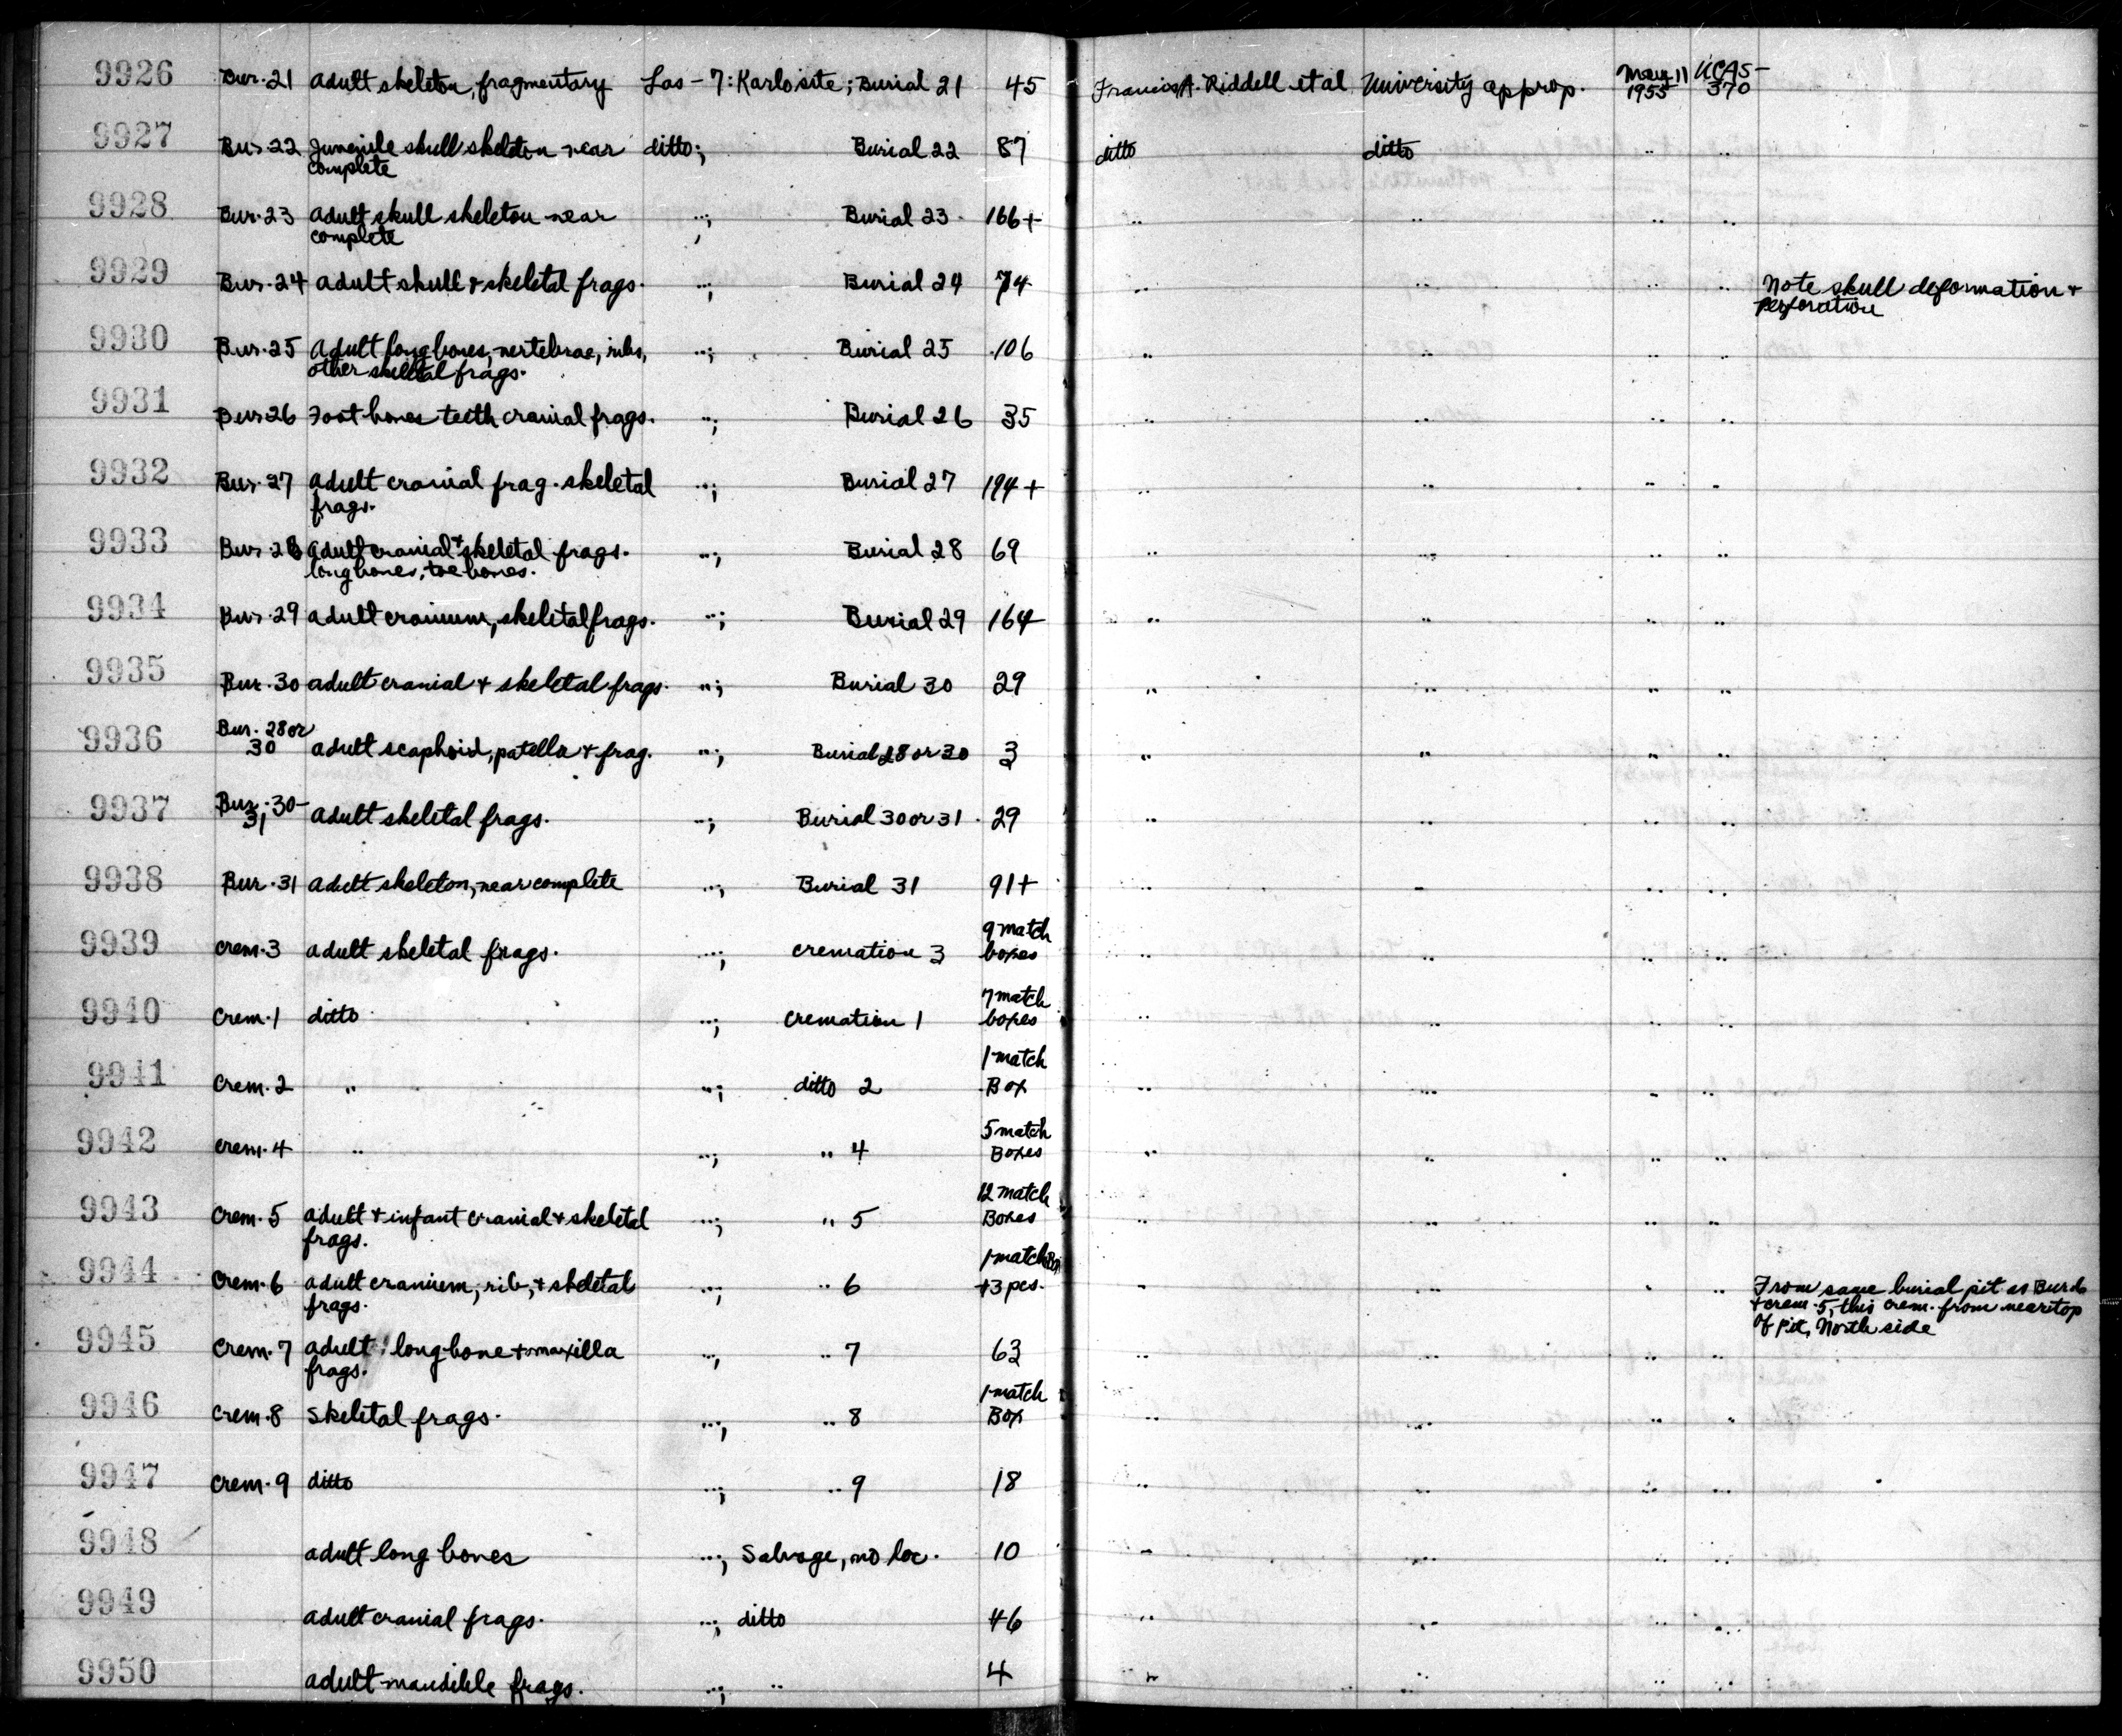 9926 Bur.21 adult skeleton, fragmentary Las-7: Karlo site; Burial 21 45 Francis A. Riddell et al University approp. May 11 1955 UCAS-370
9927 Bur.22 Juvenile skull skeleton near ditto; Burial 22 87 ditto ditto " "
complete
9928 Bur.23 adult skull skeleton near "; Burial 23 166+ " " " "
complete
9929 Bur.24 adult skull + skeletal frags. "; Burial 24 74 " " " " Note skull deformation +
perforation
9930 Bur.25 Adult long bones, vertebrae, ribs, "; Burial 25 106 " " " "
other skeletal frags.
9931 Bur.26 Foot bones teeth cranial frags. "; Burial 26 35 " " " "
9932 Bur.27 adult cranial frag. skeletal "; Burial 27 194+ " " " "
frags.
9933 Bur.28 adult cranial + skeletal frags. "; Burial 28 69 " " " "
long bones, toe bones.
9934 Bur.29 adult cranium, skeletal frags. "; Burial 29 164 " " " "
9935 Bur.30 adult cranial + skeletal frags. "; Burial 30 29 " " " "
Bur. 28 or
9936 30 adult scaphoid, patella + frag. "; Burial 28 or 30 3 " " " "
9937 Bur. 30-
31 adult skeletal frags. "; Burial 30 or 31 29 " " " "
9938 Bur.31 adult skeleton, near complete "; Burial 31 91+ " " " "
9 match
9939 crem.3 adult skeletal frags. "; cremation 3 boxes " " " "
7 match
9940 Crem.1 ditto "; cremation 1 boxes " " " "
1 match
9941 Crem.2 " "; ditto 2 Box " " " "
5 match
9942 crem.4 " "; " 4 Boxes " " " "
12 match
9943 Crem.5 adult + infant cranial + skeletal "; " 5 Boxes " " " "
frags.
1 match Box
9944 Crem.6 adult cranium, rib, + skeletal "; " 6 +3 pcs. " " " " From same burial pit as Bur.
frags. + crem. 5, this crem. from near top
of pit, North side
9945 Crem.7 adult long bone + maxilla "; " 7 63 " " " "
frags.
1 match
9946 Crem.8 Skeletal frags. "; " 8 Box " " " "
9947 Crem.9 ditto "; " 9 18 " " " "
9948 adult long bones "; Salvage, no loc. 10 " " " "
9949 adult cranial frags. "; ditto 46 " " " "
9950 adult mandible frags. "; " 4 " " " "